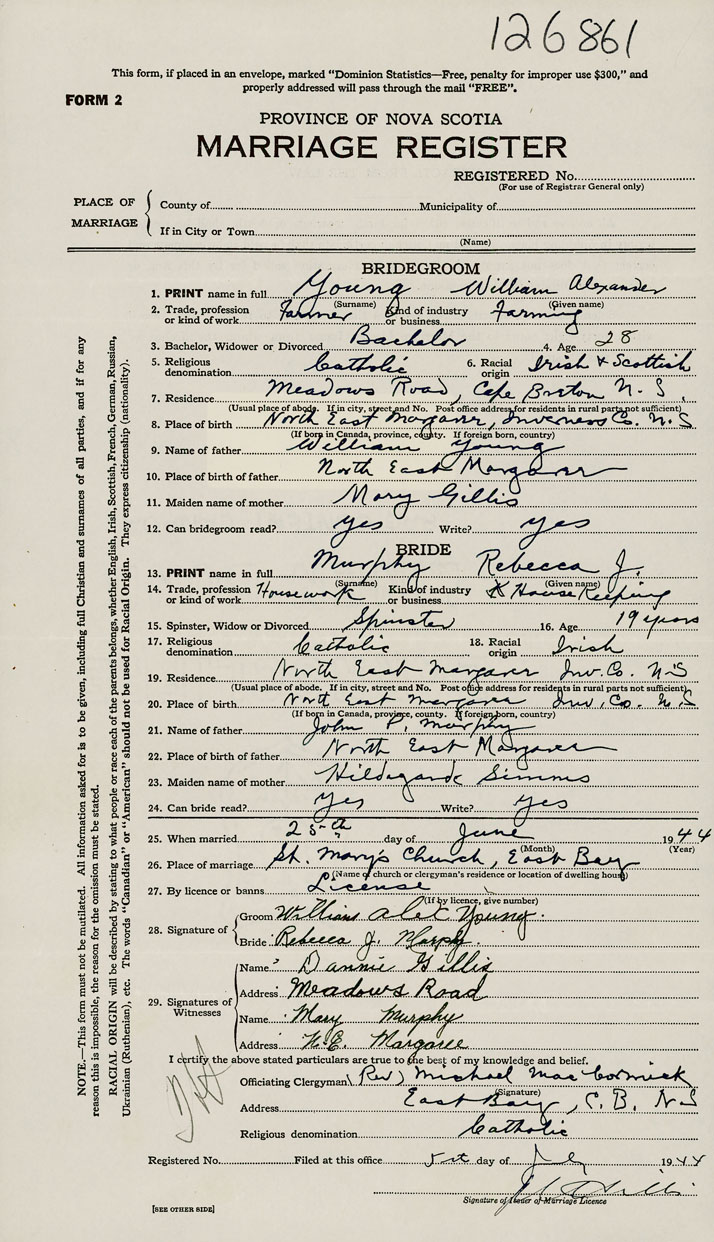 126861
This form, if placed in an envelope, marked "Dominion Statistics—Free, penalty for improper use $300," and
properly addressed will pass through the mail "FREE".
FORM 2
PROVINCE OF NOVA SCOTIA
MARRIAGE REGISTER
REGISTERED No.
(For use of Registrar General only)
PLACE OF MARRIAGE
County of Municipality of
If in City or Town
(Name)
BRIDEGROOM
1. PRINT name in full Young William Alexander
(Surname) (Given name)
2. Trade, profession or kind of work Farmer Kind of industry or business Farming
3. Bachelor, Widower or Divorced Bachelor 4. Age 28
5. Religious denomination Catholic 6. Racial origin Irish & Scottish
7. Residence Meadows Road, Cape Breton N.S.
(Usual place of abode. If in city, street and No. Post office address for residents in rural parts not sufficient)
8. Place of birth North East Margaree, Inverness Co. N.S
(If born in Canada, province, county. If foreign born, country)
9. Name of father William Young
10. Place of birth of father North East Margaree
11. Maiden name of mother Mary Gillis
12. Can bridegroom read? yes Write? yes
BRIDE
13. PRINT name in full Murphy Rebecca J.
(Surname) (Given name)
14. Trade, profession or kind of work Housework Kind of industry or business House Keeping
15. Spinster, Widow or Divorced Spinster 16. Age 19 years
17. Religious denomination Catholic 18. Racial origin Irish
19. Residence North East Margaree Inv. Co. N.S
(Usual place of abode. If in city, street and No. Post office address for residents in rural parts not sufficient)
20. Place of birth North East Margaree Inv. Co. N.S
(If born in Canada, province, county. If foreign born, country)
21. Name of father John P. Murphy
22. Place of birth of father North East Margaree
23. Maiden name of mother Hildagarde Simms
24. Can bride read? yes Write? yes
25. When married 25th day of June 1944
(Month) (Year)
26. Place of marriage St. Mary's Church, East Bay
(Name of church or clergyman's residence or location of dwelling house)
27. By licence or banns License
(If by licence, give number)
28. Signature of Groom William Alex Young.
Bride Rebecca J. Murphy.
29. Signatures of Witnesses
Name Dannie Gillis
Address Meadows Road
Name Mary Murphy
Address N.E. Margaree
I certify the above stated particulars are true to the best of my knowledge and belief.
Officiating Clergyman (Rev) Michael MacCormick
(Signature)
Address East Bay, C.B. N.S
Religious denomination Catholic
Registered No. Filed at this office day of July 1944
Signature of Issuer of Marriage Licence
[SEE OTHER SIDE]
NOTE.—This form must not be mutilated. All information asked for is to be given, including full Christian and surnames of all parties, and if for any
reason this is impossible, the reason for the omission must be stated.
RACIAL ORIGIN will be described by stating to what people or race each of the parents belongs, whether English, Irish, Scottish, French, German, Russian,
Ukrainian (Ruthenian), etc. The words "Canadian" or "American" should not be used for Racial Origin. They express citizenship (nationality).